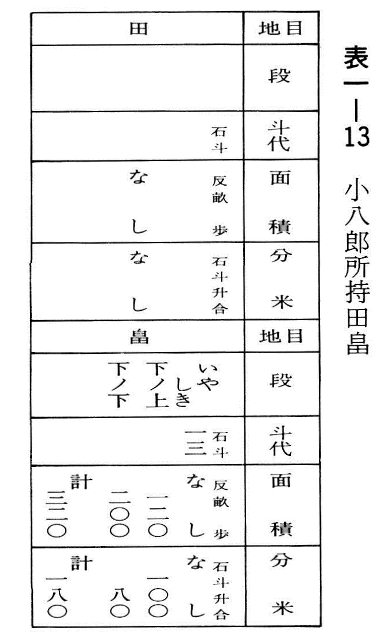 表一ー13　小八郎所持田畠
地目
段
斗代
面積
分米
地目
段
斗代
面積
分米
田
石斗
反畝歩
なし
石斗升合
なし
畠
いやしき
下ノ上
下ノ下
石斗
一三
反畝歩
なし
一二〇
二〇〇
計
三二〇
石斗升合
なし
一〇〇
八〇
計
一八〇